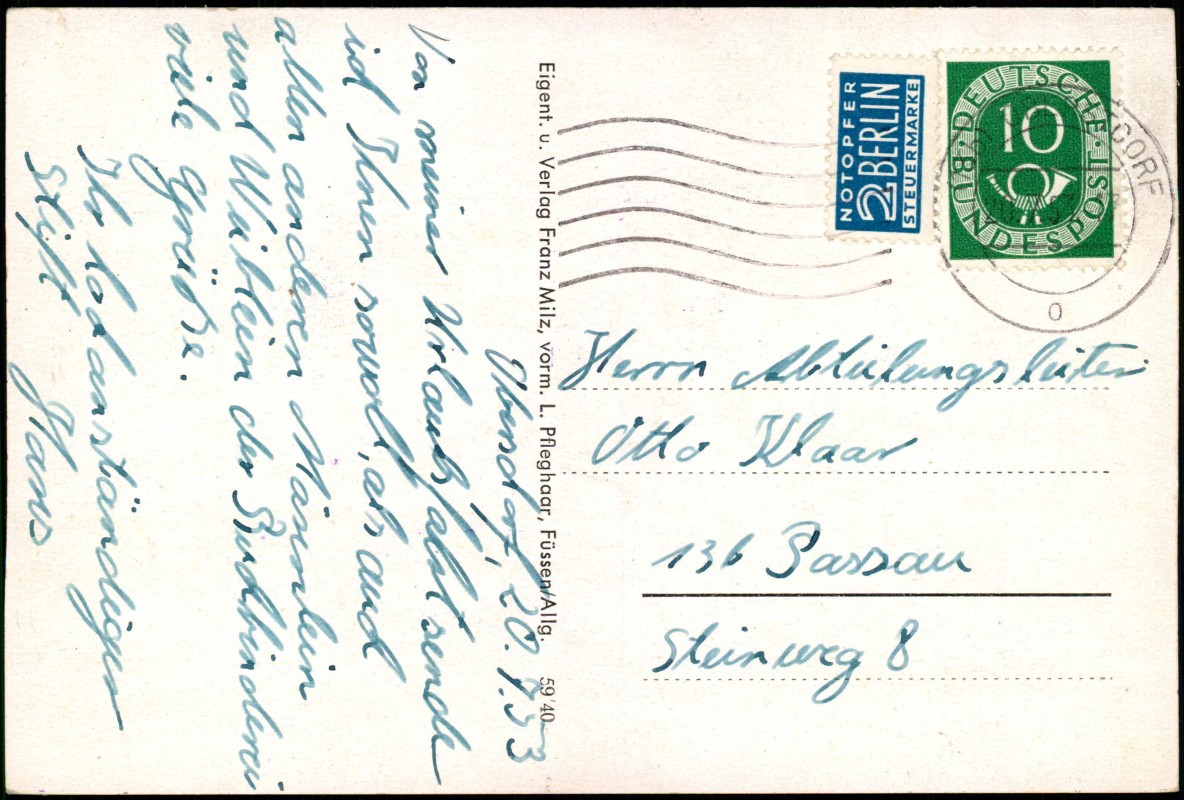 NOTOPFER
2 BERLIN
STEUERMARKE
DEUTSCHE BUNDESPOST
10
DORF
o
Oberstdorf, 20.7.53
Von meiner Urlaubsfahrt sende
ich Ihnen sowohl, als auch
allen anderen Männlein
und Weiblein der Buchbinderei
viele Grüße.
Ihr hochanständiger
Stift Hans
Eigent. u. Verlag Franz Milz, vorm. L. Pfleghaar, Füssen/Allg. 59'40
Herrn Abteilungsleiter
Otto Klaar
13b Passau
Steinweg 8